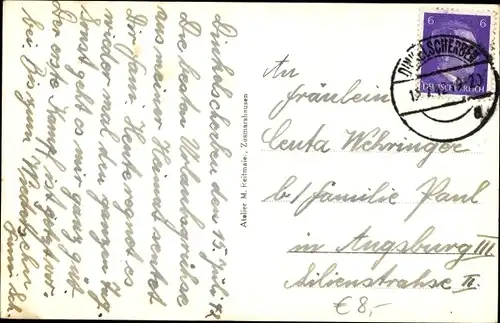 Dinkelscherben den 15. Juli 42
Die besten Urlaubsgrüsse
aus meiner Heimat sendet
Dir Hans. Heute regnet es
wieder mal den ganzen Tag.
Sonst geht es mir ganz gut
Der erste Kampf ist jetzt vor-
bei. Auf Wiedersehn
Atelier M. Heitmaier, Zusmarshausen
An
Fräulein
Centa Wehringer
b/ Familie Paul
in Augsburg III
Lilienstrahse II.
€ 8,-
6 6
DEUTSCHES REICH
DINKELSCHERBEN